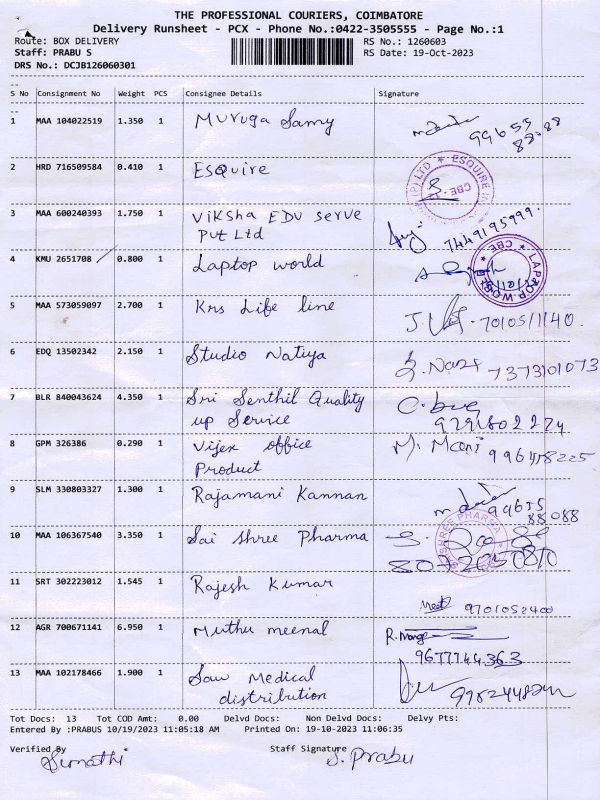 THE PROFESSIONAL COURIERS, COIMBATORE
Delivery Runsheet - PCX - Phone No.:0422-3505555 - Page No.:1
Route: BOX DELIVERY RS No.: 1260603
Staff: PRABU S RS Date: 19-Oct-2023
DRS No.: DCJB126060301
S No Consignment No Weight PCS Consignee Details Signature
1 MAA 104022519 1.350 1 Muruga Samy 99655
88088
2 HRD 716509584 0.410 1 ESquire
(P) LTD * ESQUIRE
CBE
3 MAA 600240393 1.750 1 Viksha EDU Serve 7449195999.
Pvt Ltd
4 KMU 2651708 0.800 1 Laptop world
CBE * LAPTOP WORLD
5 MAA 573059097 2.700 1 Kns Life line 7010511140.
6 EDQ 13502342 2.150 1 Studio Natiya 7373101073
7 BLR 840043624 4.350 1 Sri Senthil Quality
up Service 9791802274
8 GPM 326386 0.290 1 Vijex office M. Mani
Product
9 SLM 330803327 1.300 1 Rajamani Kannan 99655
88088
10 MAA 106367540 3.350 1 Sai Shree Pharma
SHREE PHARMA
11 SRT 302223012 1.545 1 Rajesh Kumar
9701052400
12 AGR 700671141 6.950 1 Muthu meenal
9677744363
13 MAA 102178466 1.900 1 Saw Medical
distribution
Tot Docs: 13 Tot COD Amt: 0.00 Delvd Docs: Non Delvd Docs: Delvy Pts:
Entered By :PRABUS 10/19/2023 11:05:18 AM Printed On: 19-10-2023 11:06:35
Verified By Staff Signature
Sumathi S. Prabu